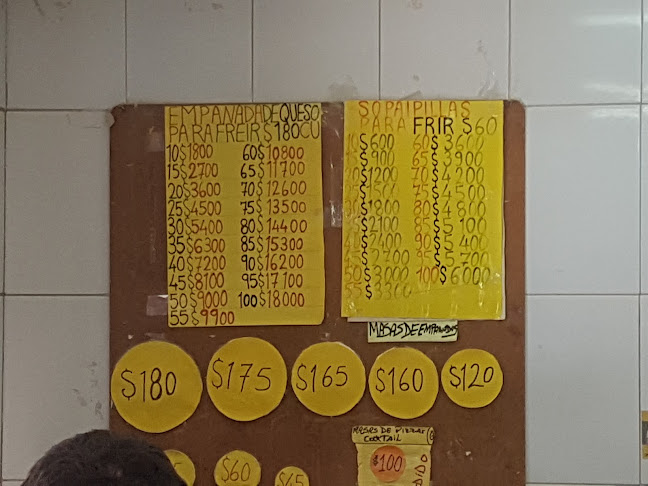 EMPANADA DE QUESO
PARA FREIR $ 180 CU
10 $1800 60 $10800
15 $2700 65 $11700
20 $3600 70 $12600
25 $4500 75 $13500
30 $5400 80 $14400
35 $6300 85 $15300
40 $7200 90 $16200
45 $8100 95 $17100
50 $9000 100 $18000
55 $9900
SOPAIPILLAS
PARA FRIR $60
$600 60 $3600
$900 65 $3900
$1200 70 $4200
75 $4500
$1800 80 $4800
$2100 85 $5100
$2400 90 $5400
$2700 95 $5700
50 $3000 100 $6000
$3300
MASAS DE EMPANADAS
$180 $175 $165 $160 $120
MASAS DE PIZZAS
COKTAIL
$60 $45
$100